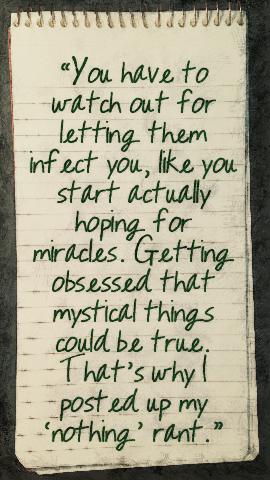 “You have to
watch out for
letting them
infect you, like you
start actually
hoping for
miracles. Getting
obsessed that
mystical things
could be true.
That's why I
posted up my
‘nothing’ rant.”